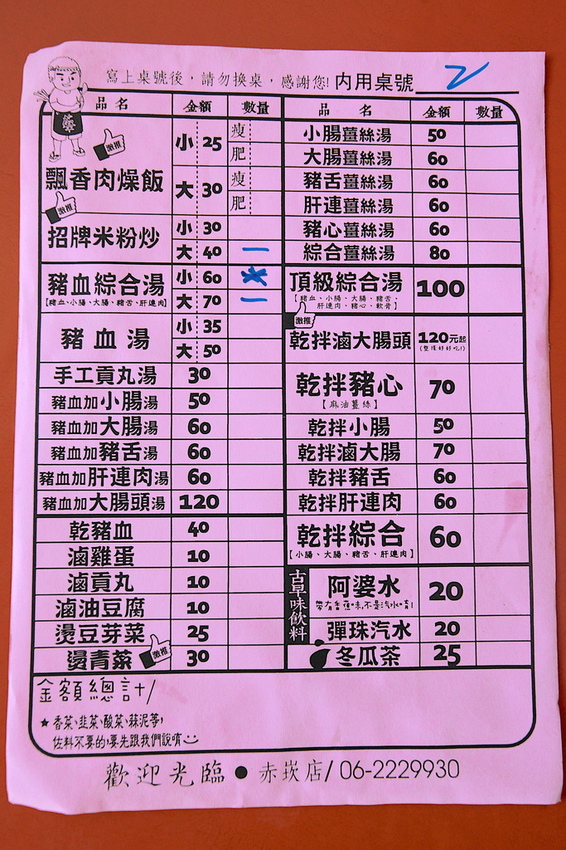 寫上桌號後，請勿換桌，感謝您! 内用桌號 2
品名 金額 數量
激推
飄香肉燥飯 小 25 瘦 肥
大 30 瘦 肥
激推
招牌米粉炒 小 30
大 40 一
豬血綜合湯 小 60
【豬血、小腸、大腸、豬舌、肝連肉】 大 70 一
豬血湯 小 35
大 50
手工貢丸湯 30
豬血加小腸湯 50
豬血加大腸湯 60
豬血加豬舌湯 60
豬血加肝連肉湯 60
豬血加大腸頭湯 120
乾豬血 40
滷雞蛋 10
滷貢丸 10
滷油豆腐 10
燙豆芽菜 25
燙青菜 激推 30
品名 金額 數量
小腸薑絲湯 50
大腸薑絲湯 60
豬舌薑絲湯 60
肝連薑絲湯 60
豬心薑絲湯 60
綜合薑絲湯 80
頂級綜合湯 100
【豬血、小腸、大腸、豬舌、
肝連肉、豬心、軟骨】
激推
乾拌滷大腸頭 120元起
(整條好好吃!)
乾拌豬心 70
【麻油薑絲】
乾拌小腸 50
乾拌滷大腸 70
乾拌豬舌 60
乾拌肝連肉 60
乾拌綜合 60
【小腸、大腸、豬舌、肝連肉】
古早味飲料
阿婆水 20
帶有香蕉味,不是汽水唷!
彈珠汽水 20
冬瓜茶 25
金額總計/
★ 香菜、韭菜、酸菜、蒜泥等,
佐料不要的,要先跟我們說唷
歡迎光臨 ● 赤崁店/ 06-2229930